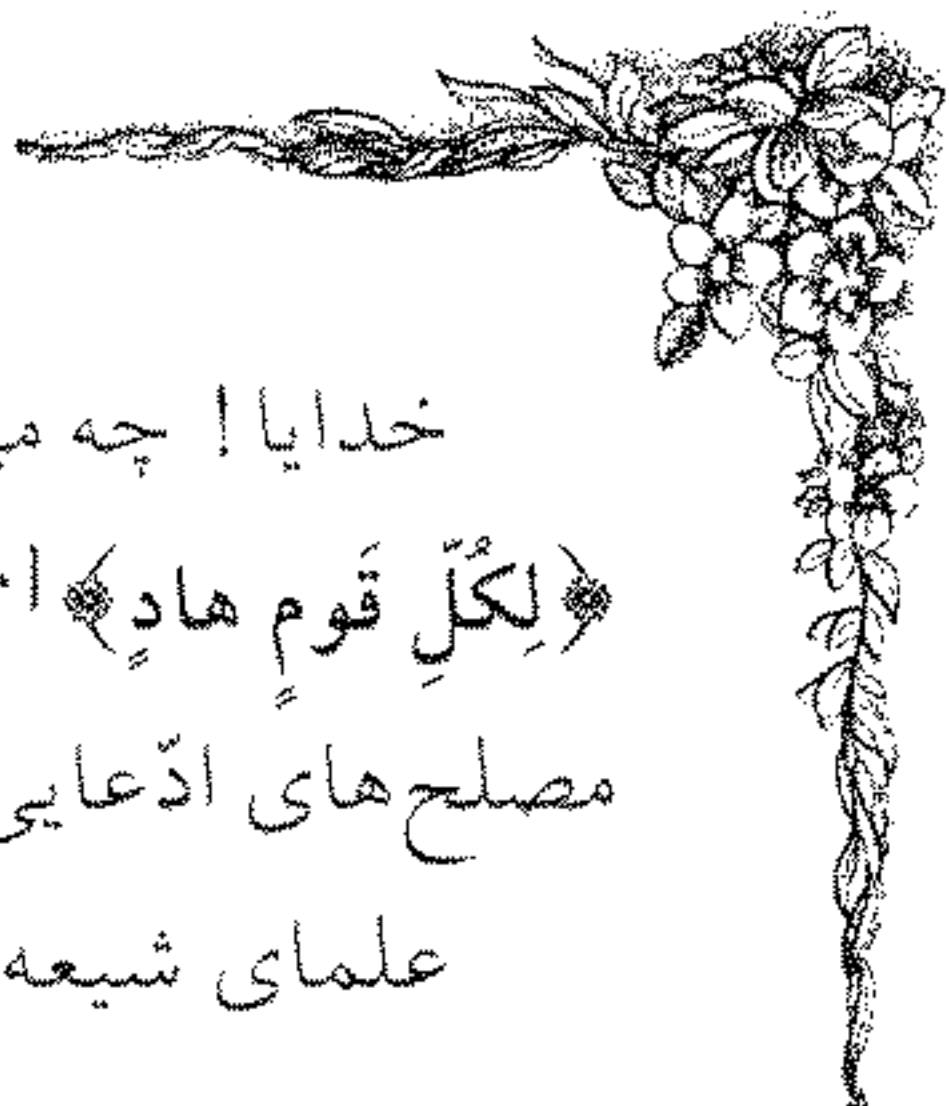 خدایا! چه
﴿لِكُلِّ قَومٍ هادٍ﴾
مصلح‌های ادّعایی
علمای شیعه